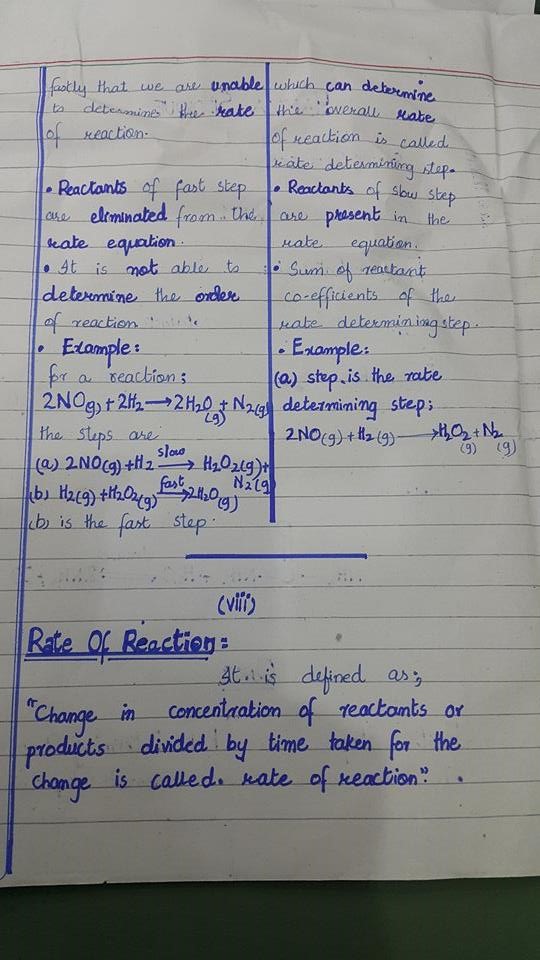 fastly that we are unable
to determine the rate
of reaction.
• Reactants of fast step
are eliminated from the
rate equation.
• It is not able to
determine the order
of reaction
• Example:
for a reaction;
2NO(g) + 2H₂ → 2H₂O(g) + N₂(g)
the steps are
(a) 2NO(g) + H₂ slow → H₂O₂(g) + N₂(g)
(b) H₂(g) + H₂O₂(g) fast → 2H₂O(g)
(b) is the fast step.
which can determine
the overall rate
of reaction is called
rate determining step.
• Reactants of slow step
are present in the
rate equation.
• Sum of reactant
co-efficients of the
rate determining step.
• Example:
(a) step is the rate
determining step;
2NO(g) + H₂(g) → H₂O₂(g) + N₂(g)
(viii)
Rate Of Reaction:
It is defined as;
"Change in concentration of reactants or
products divided by time taken for the
change is called rate of reaction".